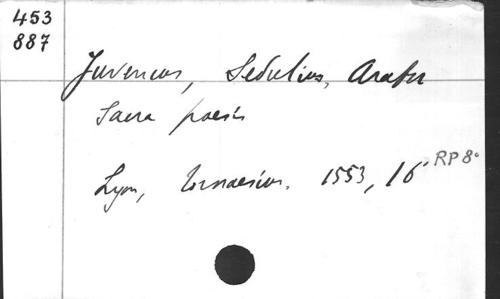 453
887
Juvencus, Sedulius, Arator
Sacra poesis
Lyon, Tornaesius. 1553, 16°
RP 8°